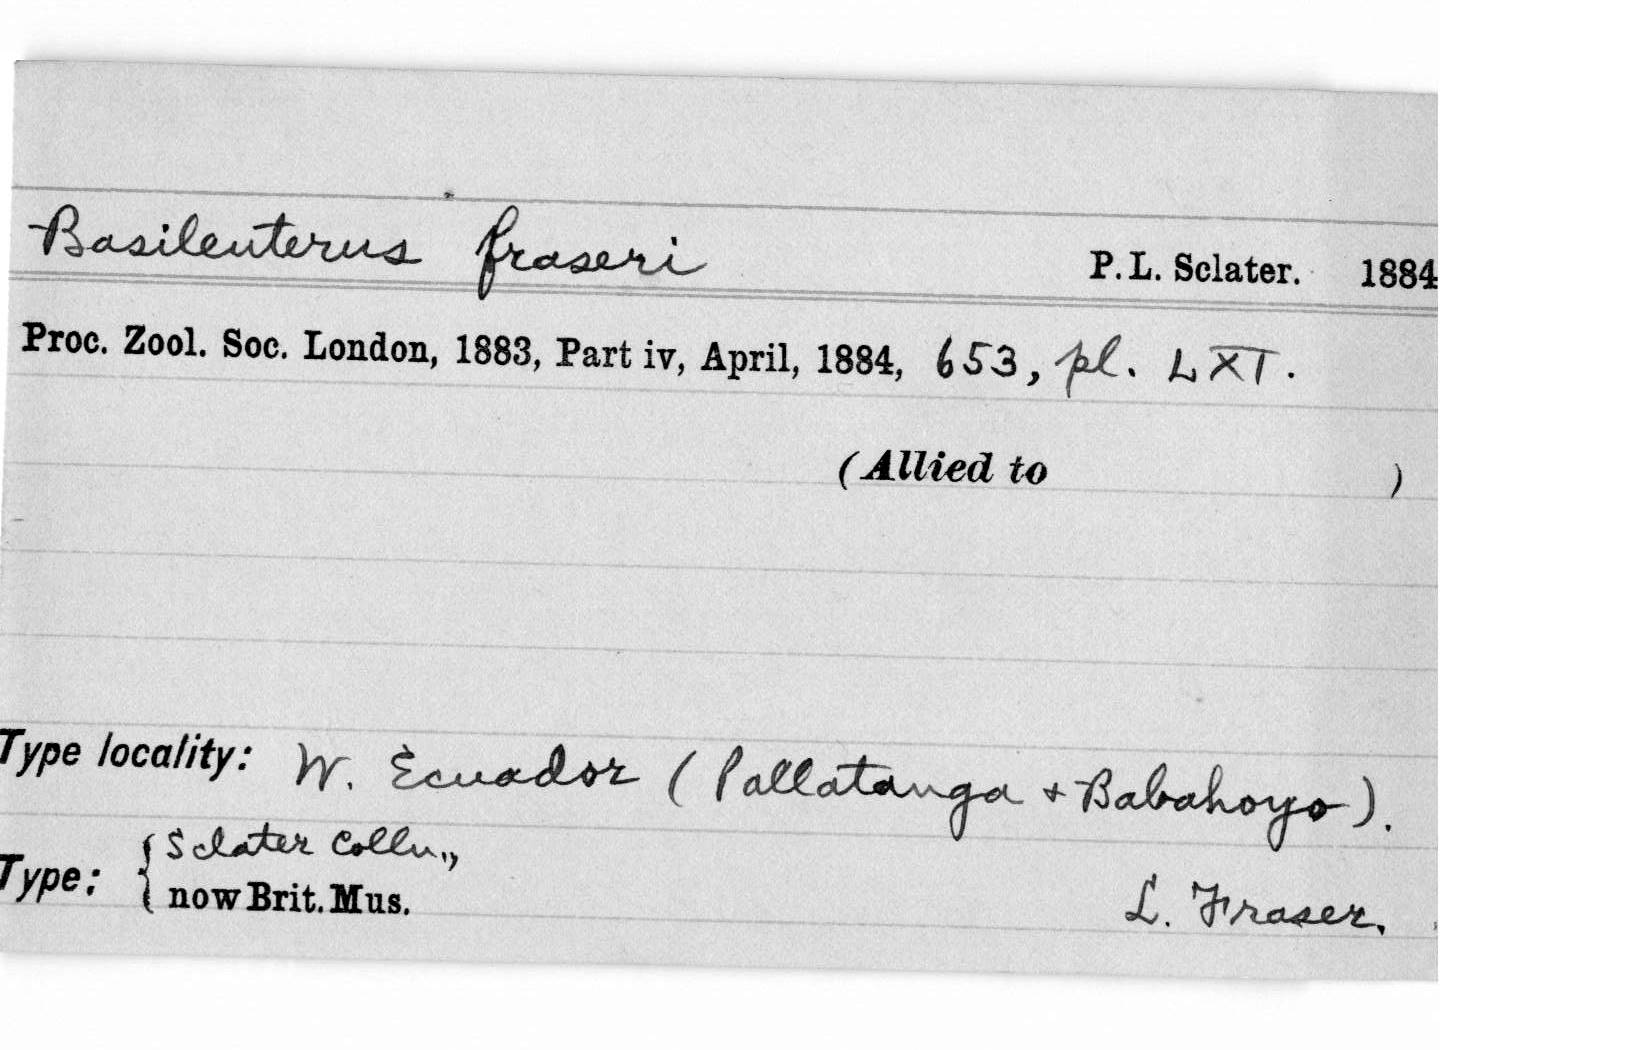 Basileuterus fraseri P. L. Sclater. 1884
Proc. Zool. Soc. London, 1883, Part iv, April, 1884, 653, pl. LXI.
(Allied to )
Type locality: W. Ecuador (Pallatanga + Babahoyo).
Type: { Sclater Colln.,
now Brit. Mus. L. Fraser.